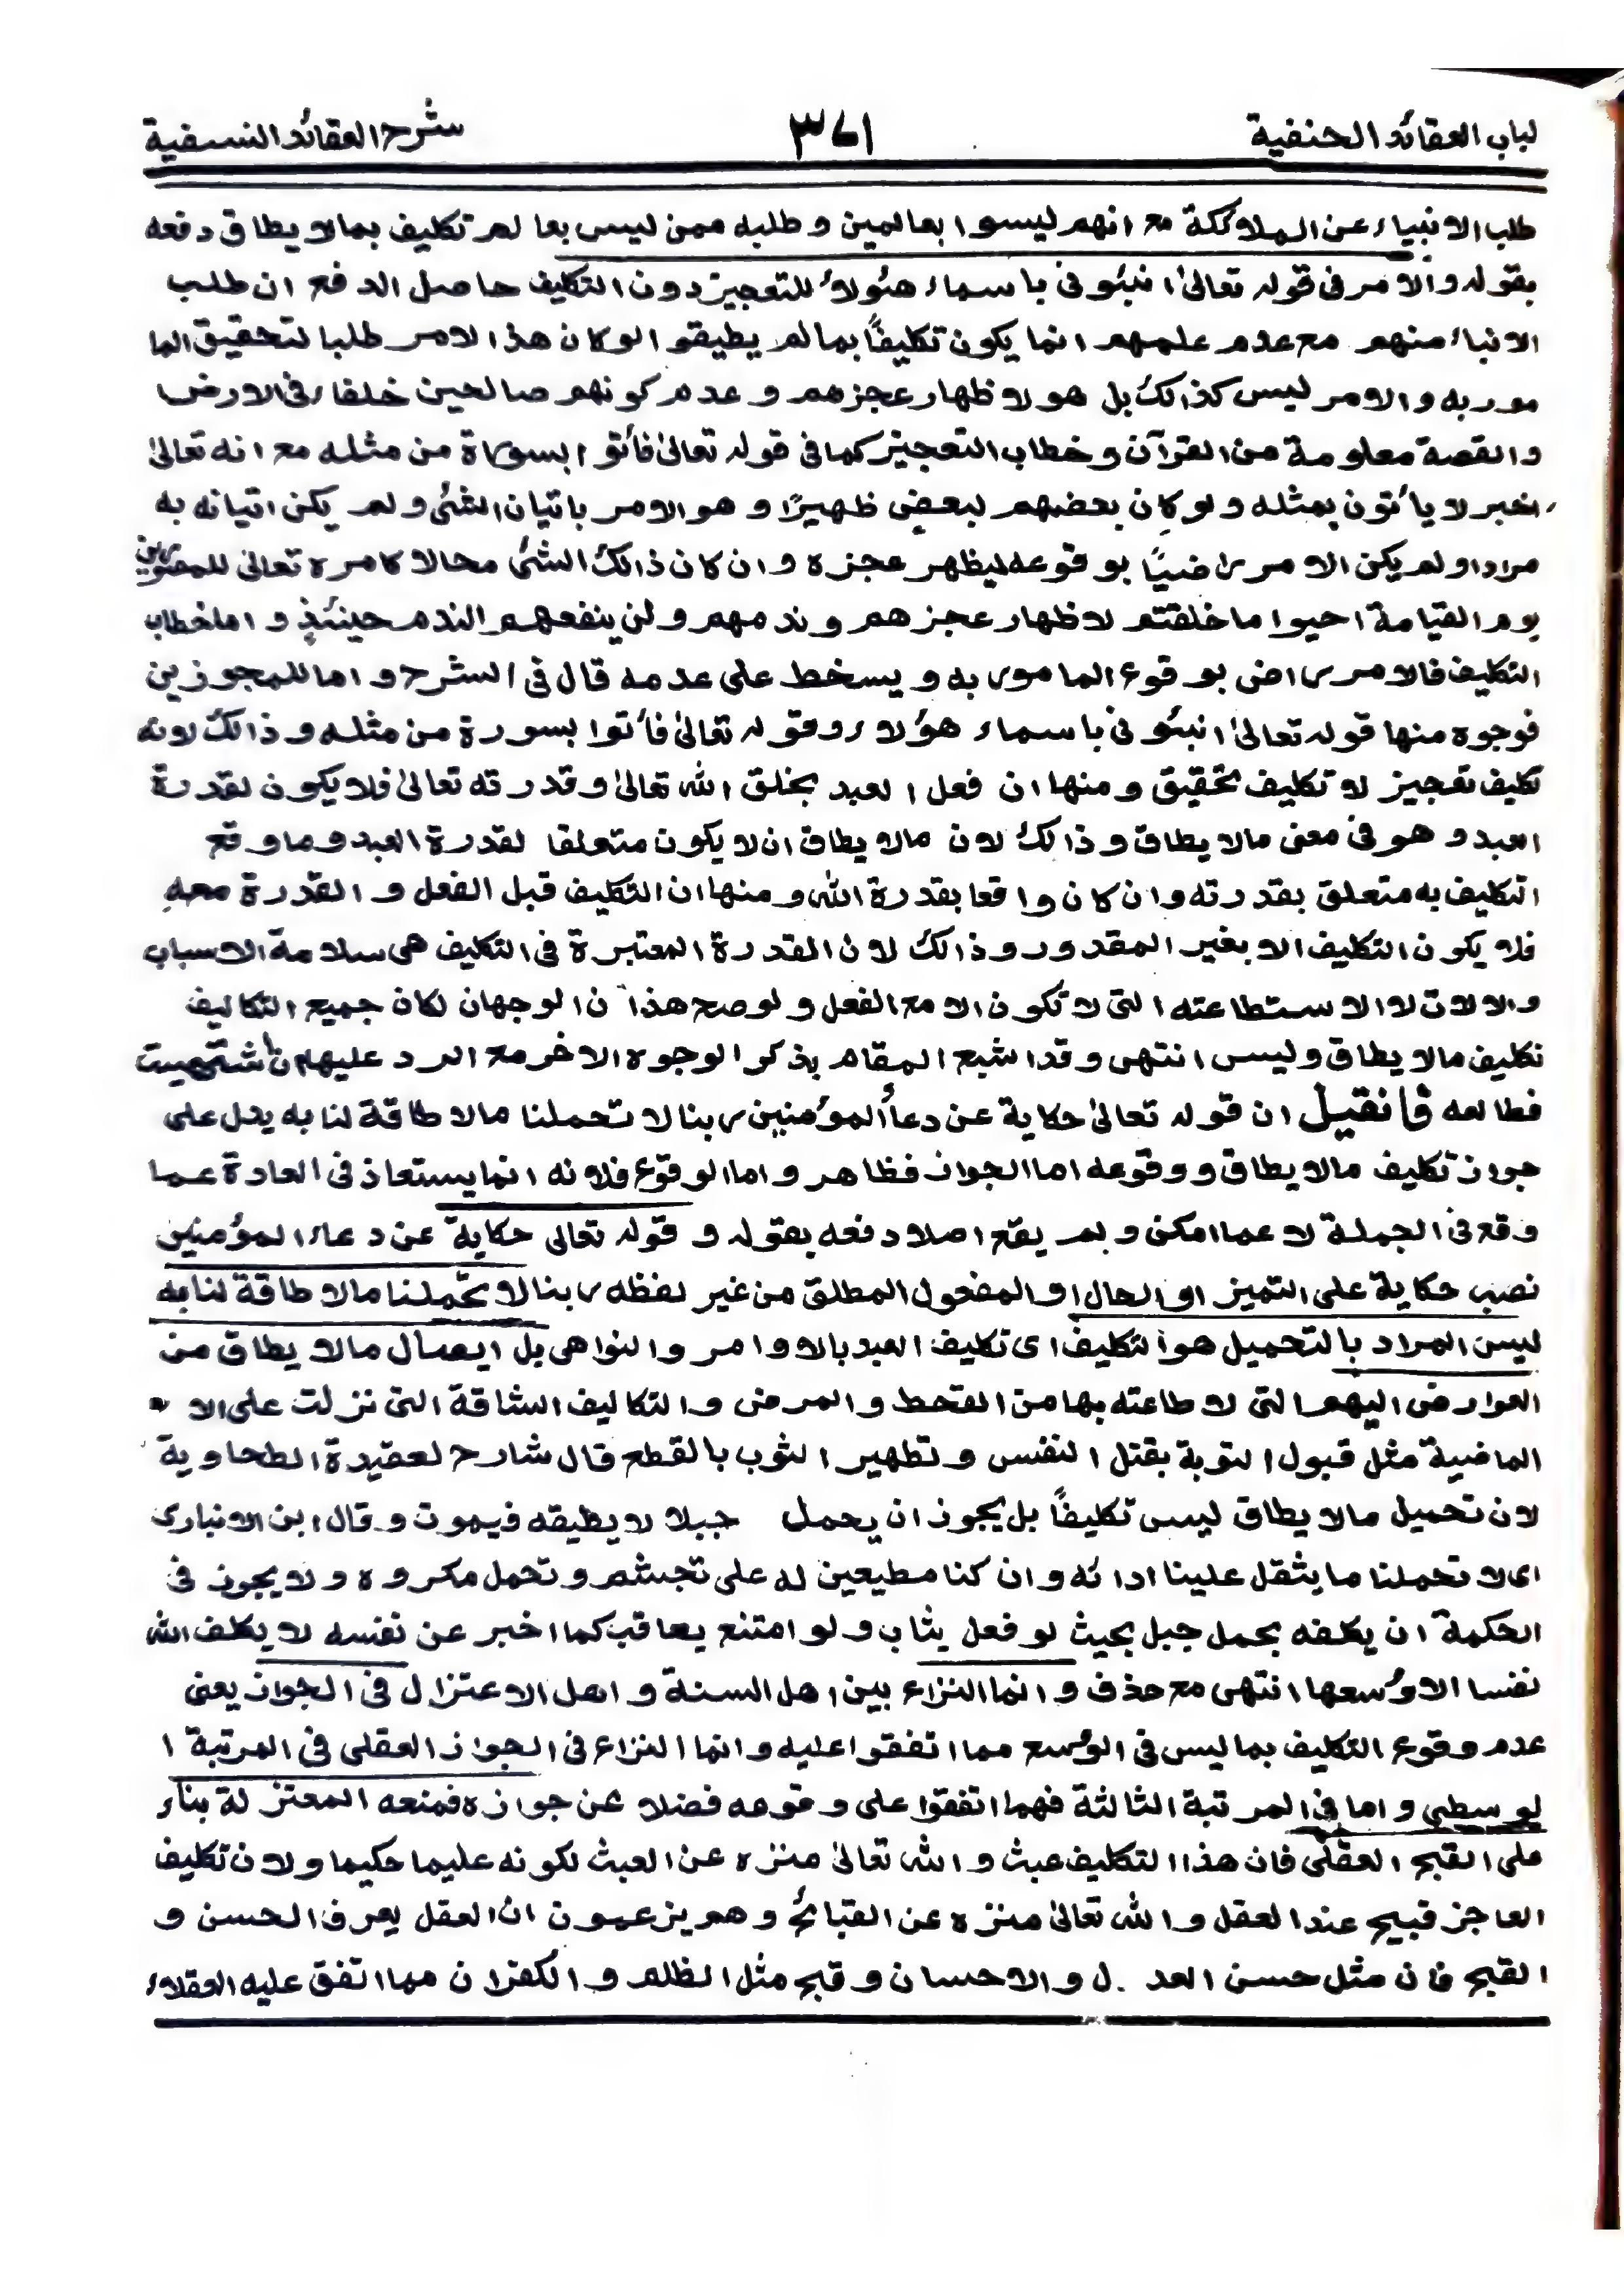 لباب العقائد الحنفية ٣٧١ شرح العقائد النسفية
طلب الانبياء عن الملائكة مع انهم ليسوا بعالمين وطلبه ممن ليس بعالم تكليف بمالا يطاق دفعه
بقوله والامر فى قوله تعالىٰ انبئونى باسماء هٰؤلاء للتعجيز دون التكليف حاصل الدفع ان طلب
الانباء منهم مع عدم علمهم انما يكون تكليفًا بمالم يطيقوا لو كان هذا الامر طلبا لتحقيق الما
مور به والامر ليس كذالك بل هو لاظهار عجزهم وعدم كونهم صالحين خلفاء فى الارض
والقصة معلومة من القرآن وخطاب التعجيز كما فى قوله تعالىٰ فأتوا بسورة من مثله مع انه تعالىٰ
اخبر لا يأتون بمثله ولو كان بعضهم لبعض ظهيرًا وهو الامر باتيان الشئ ولم يكن اتيانه به
مرادا ولم يكن الامر راضيًا بوقوعه ليظهر عجزه وان كان ذالك الشئ محالا كامره تعالىٰ للمصورين
يوم القيامة احيوا ما خلقتم لاظهار عجزهم وندمهم ولن ينفعهم الندم حينئذٍ واما خطاب
التكليف فالامر راضى بوقوع المامور به ويسخط على عدمه قال فى الشرح واما للمجوزين
فوجوه منها قوله تعالىٰ انبئونى باسماء هؤلاء وقوله تعالىٰ فأتوا بسورة من مثله وذالك لانه
تكليف تعجيز لا تكليف تحقيق ومنها ان فعل العبد بخلق الله تعالىٰ وقدرته تعالىٰ فلا يكون لقدرة
العبد وهو فى معنى مالا يطاق وذالك لان مالا يطاق ان لا يكون متعلقا لقدرة العبد وما وقع
التكليف به متعلق بقدرته وان كان واقعا بقدرة الله ومنها ان التكليف قبل الفعل والقدرة معه
فلا يكون التكليف الا بغير المقدور وذالك لان القدرة المعتبرة فى التكليف هى سلامة الاسباب
والالات لا الاستطاعته التى لا تكون الا مع الفعل ولو صح هذا ن الوجهان لكان جميع التكاليف
تكليف مالا يطاق وليس انتهى وقد اشبع المقام بذكر الوجوه الاخر مع الرد عليها ان اشتهيت
فطالعه فان قيل ان قوله تعالىٰ حكاية عن دعأ المؤمنين ربنا لا تحملنا مالا طاقة لنا به يدل على
جواز تكليف مالا يطاق ووقوعه اما الجواز فظاهر واما الوقوع فلانه انما يستعاذ فى العادة عما
وقع فى الجملة لا عما امكن ولم يقع اصلا دفعه بقوله وقوله تعالى حكاية عن دعاء المؤمنين
نصب حكاية على التميز او الحال او المفعول المطلق من غير لفظه ربنا لا تحملنا مالا طاقة لنا به
ليس المراد بالتحميل هو التكليف اى تكليف العبد بالاوامر والنواهى بل ايصال مالا يطاق من
العوارض اليهم التى لا طاعته بها من القحط والمرض والتكاليف الشاقة التى نزلت على الا
الماضية مثل قبول التوبة بقتل النفس وتطهير الثوب بالقطع قال شارح لعقيدة الطحاوية
لان تحميل مالا يطاق ليس تكليفًا بل يجوز ان يحمل جبلا لا يطيقه فيموت وقال ابن الانبارى
اى لا تحملنا ما يثقل علينا ادائه وان كنا مطيعين له على تجشم وتحمل مكروه ولا يجوز فى
الحكمة ان يكلفه بحمل جبل بحيث لو فعل يثاب ولو امتنع يعاقب كما اخبر عن نفسه لا يكلف الله
نفسا الا وُسعها انتهى مع حذف وانما النزاع بين اهل السنة واهل الاعتزال فى الجواز يعنى
عدم وقوع التكليف بما ليس فى الوُسع مما اتفقوا عليه وانما النزاع فى الجواز العقلى فى المرتبة ا
لوسطى واما فى المرتبة الثالثة فهما اتفقوا على وقوعه فضلا عن جوازه فمنعه المعتزلة بناء
على القبح العقلى فان هذا التكليف عبث والله تعالىٰ منزه عن العبث لكونه عليما حكيما ولان تكليف
العاجز قبيح عند العقل والله تعالىٰ منزه عن القبائح وهم يزعمون ان العقل يعرف الحسن و
القبح فان مثل حسن العدل والاحسان وقبح مثل الظلم والكفران مما اتفق عليه العقلاء